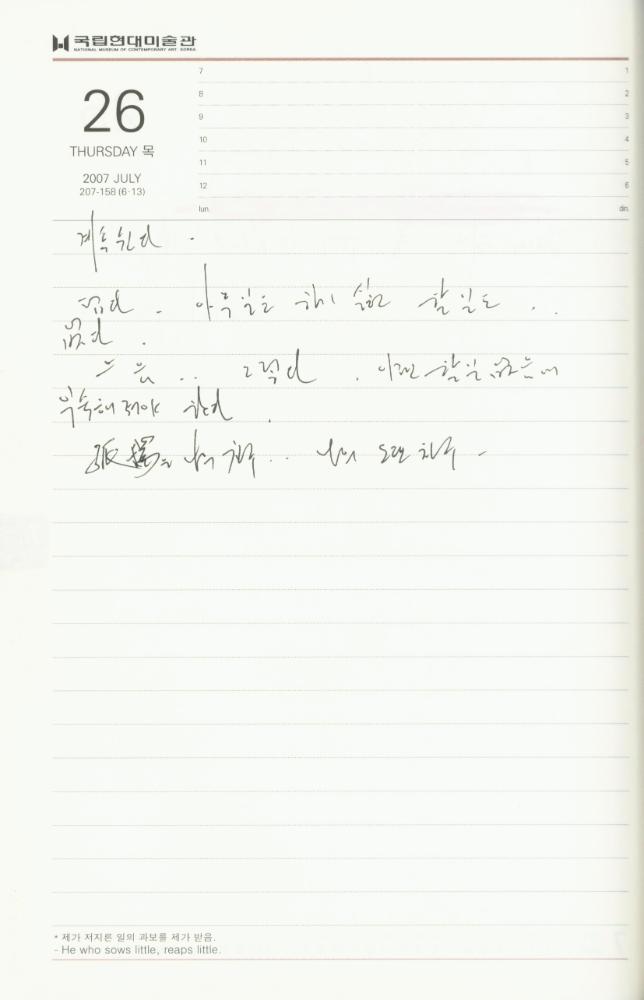 국립현대미술관
NATIONAL MUSEUM OF CONTEMPORARY ART, KOREA
26
THURSDAY 목
2007 JULY
207-158 (6·13)
7
8
9
10
11
12
lun.
1
2
3
4
5
6
din.
계속 쉰다.
덥다. 아무일도 하기 싫고 할 일도..
없다.
.. 그렇다. 이젠 할일 없음에
익숙해져야 한다.
孤獨은 나의 친구.. 나의 오랜 친구-
* 제가 저지른 일의 과보를 제가 받음.
- He who sows little, reaps little.